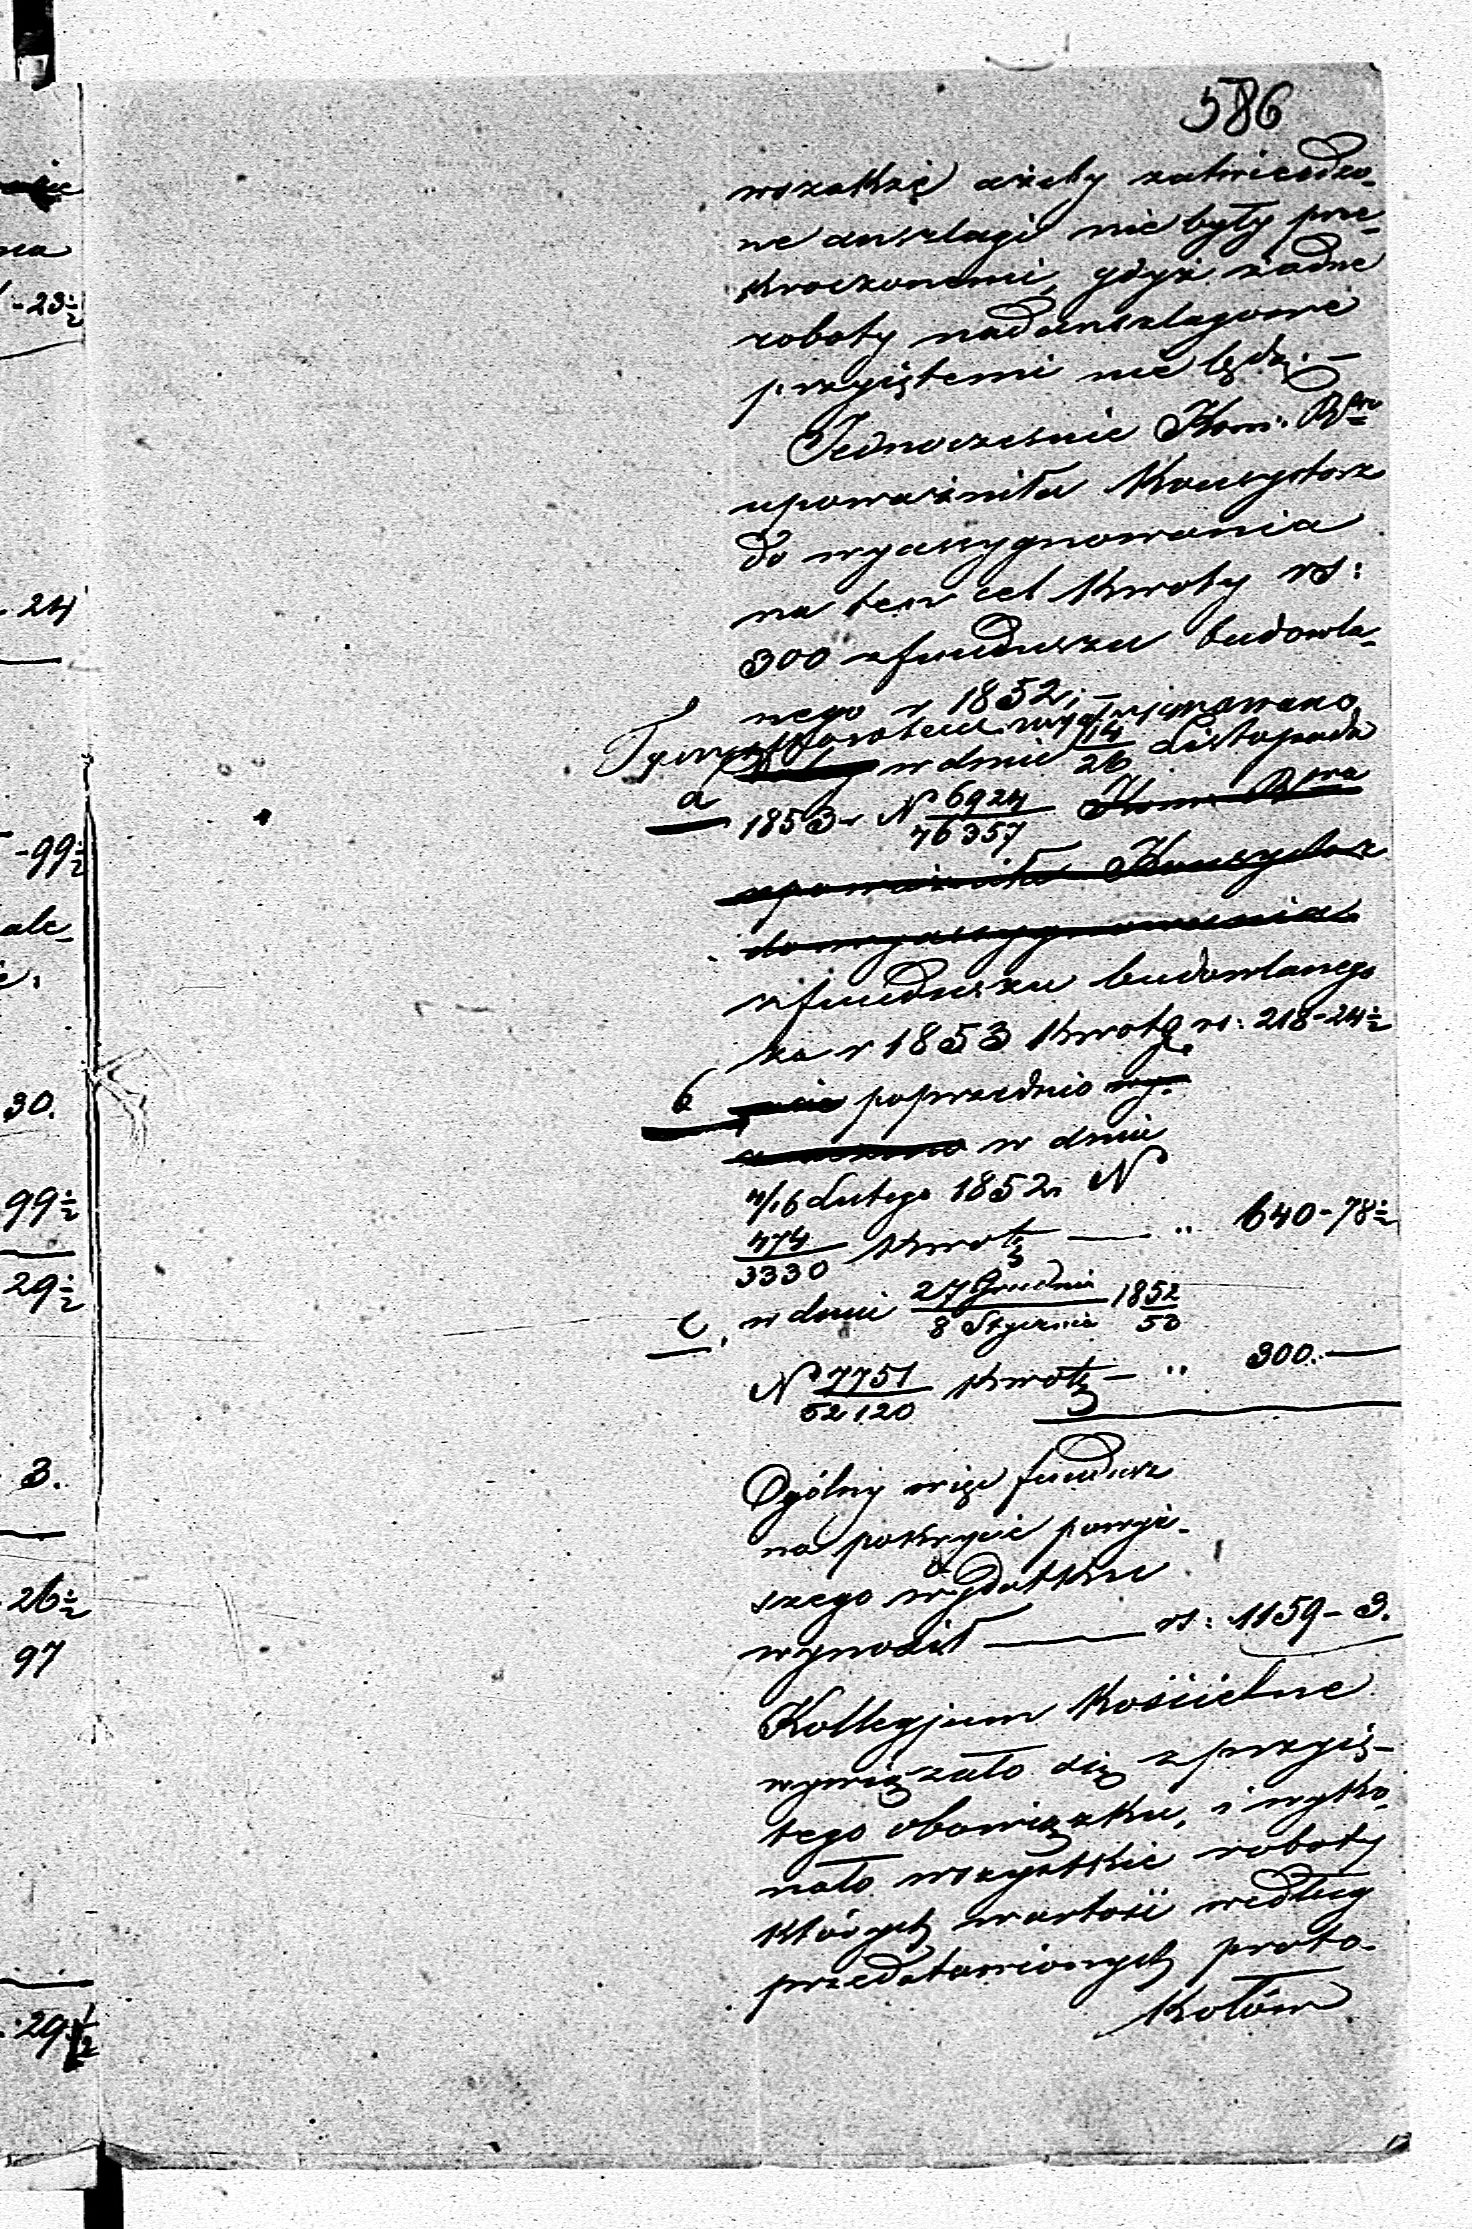 586
wszakże ażeby zatwierdzo-
ne anszlagi nie były prze-
kroczonemi, gdyż żadne
roboty nadanszlagowe
przyjętemi nie będą. —
Jednocześnie Kom: Rzą
upoważniła Konsystorz
do wyassygnowania
na ten cel kwoty rs:
300 z funduszu budowla-
nego r 1852; —
Tym sposobem wyassygnowano
a w dniu 14/26 Listopada
1853 r N 6924/76357 Kom: Rzą
upoważniła Konsystorz
do wyassygnowania
z funduszu budowlanego
za r 1853 kwotę rs: 218-24½
b poprzednio wy-
w dniu
4/16 Lutego 1852 r N
474/3330 kwotę — " 640-78½
c, w dniu 27 Grudnia/8 Stycznia 1852/53
N 7751/52120 kwotę — " 300. —
Ogólny więc fundusz
na pokrycie powyż-
szego wydatku
wynosił — rs: 1159-3.
Kollegjum Kościelne
wywiązało się z przyję-
tego obowiązku, i wyko-
nało wszystkie roboty
których wartość według
przedstawionych proto-
kołów
-23½
24
-99½
ale-
30.
99½
29½
3.
26½
97
29½